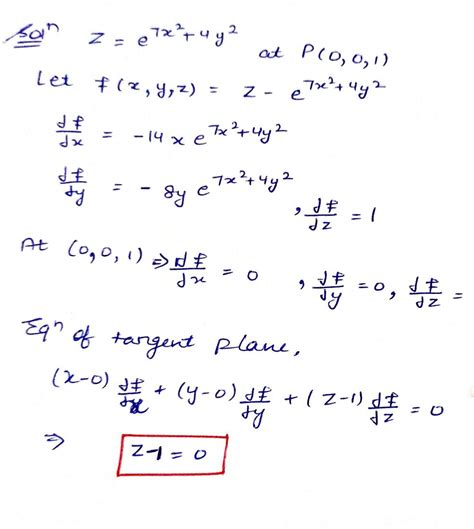 Solⁿ z = e^{7x²+4y²} at P(0,0,1)
Let f(x,y,z) = z - e^{7x²+4y²}
df/dx = -14x e^{7x²+4y²}
df/dy = - 8y e^{7x²+4y²} , df/dz = 1
At (0,0,1) ⇒ df/dx = 0 , df/dy = 0, df/dz =
Eqⁿ of tangent plane,
(x-0) df/dx + (y-0) df/dy + (z-1) df/dz = 0
⇒ z-1 = 0